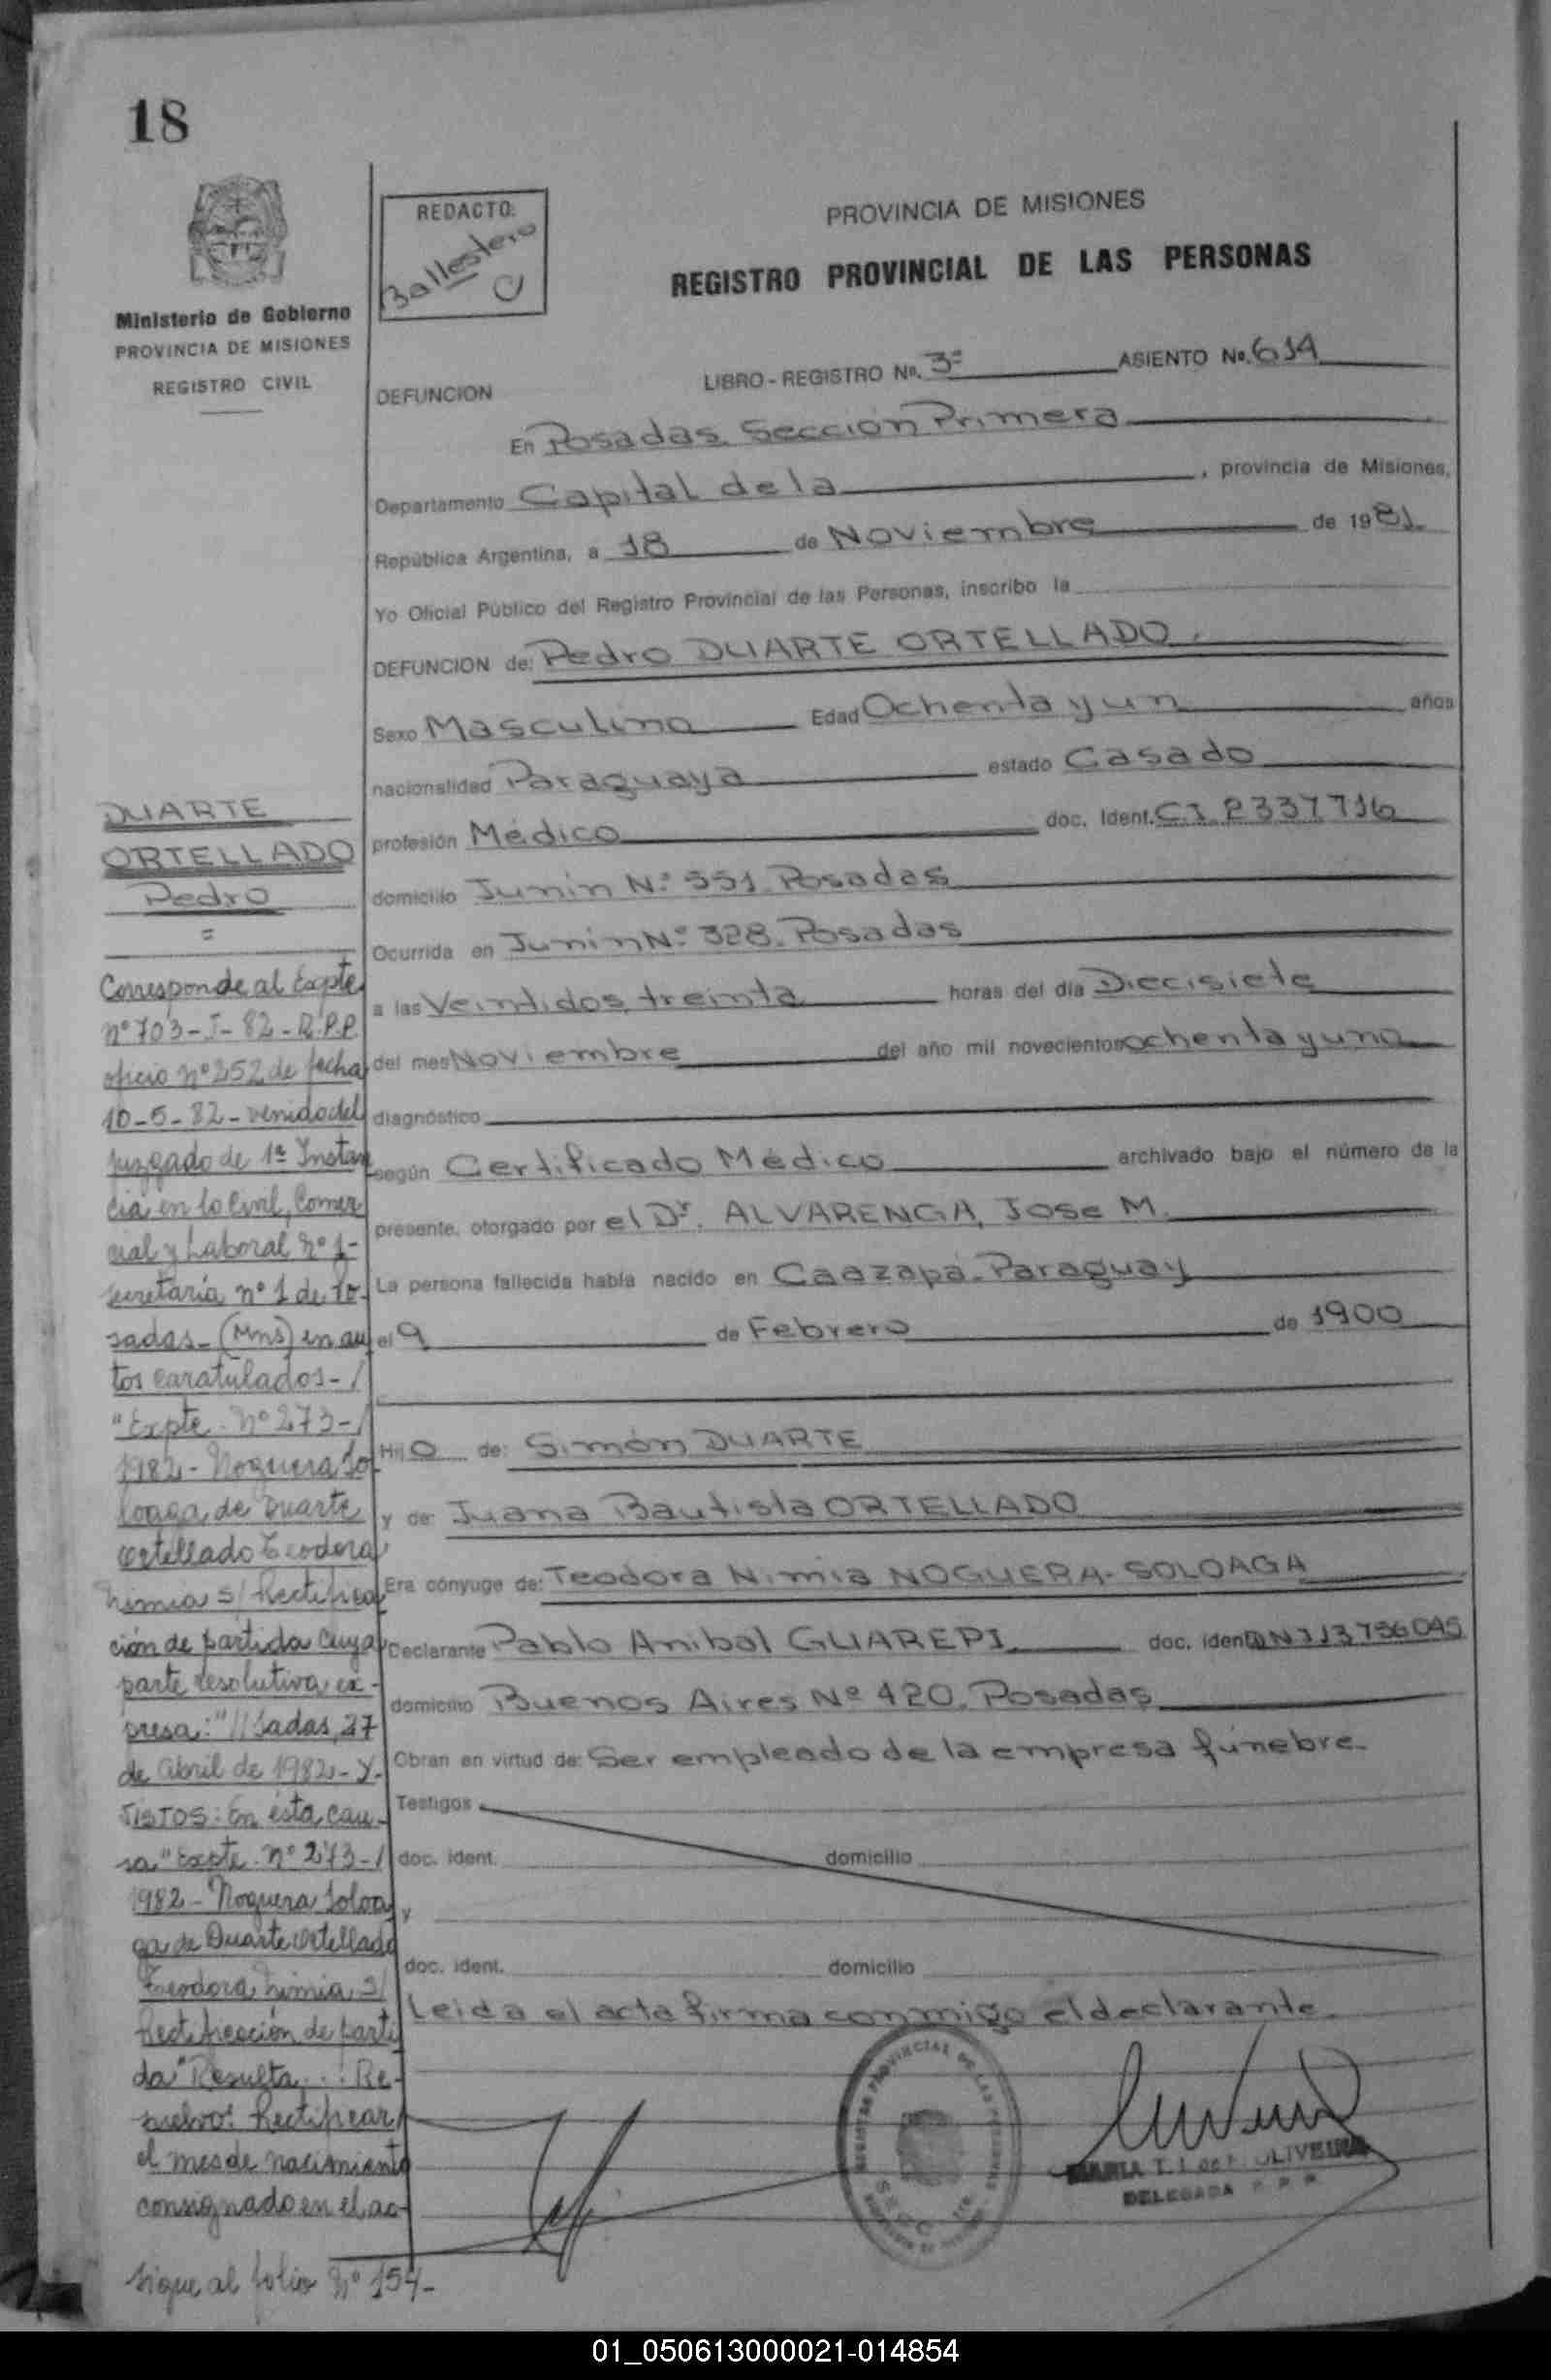 18
REDACTO:
Ballestero
PROVINCIA DE MISIONES
REGISTRO PROVINCIAL DE LAS PERSONAS
Ministerio de Gobierno
PROVINCIA DE MISIONES
REGISTRO CIVIL
LIBRO - REGISTRO No. 3º ASIENTO No. 614
DEFUNCION
En Posadas. Sección Primera
Departamento Capital de la, provincia de Misiones,
República Argentina, a 18 de Noviembre de 1981
Yo Oficial Público del Registro Provincial de las Personas, inscribo la
DEFUNCION de: Pedro DUARTE ORTELLADO.
Sexo Masculino Edad Ochenta y un años
nacionalidad Paraguaya estado Casado
profesión Médico doc. Ident. C.I. 2337716
domicilio Junin N.º 551. Posadas
Ocurrida en Junin N.º 328. Posadas
a las Veintidos, treinta horas del día Diecisiete
del mes Noviembre del año mil novecientos ochenta y uno
diagnóstico
según Certificado Médico archivado bajo el número de la
presente, otorgado por el Dr. ALVARENGA, Jose M.
La persona fallecida había nacido en Caazapá. Paraguay
el 9 de Febrero de 1900
Hijo de: Simón DUARTE
y de: Juana Bautista ORTELLADO
Era cónyuge de: Teodora Nimia NOGUERA-SOLOAGA
Declarante Pablo Anibal GUAREPI doc. ident. DNI 13756045
domicilio Buenos Aires Nº 420. Posadas
Obran en virtud de: Ser empleado de la empresa fúnebre.
Testigos
doc. ident. domicilio
y
doc. ident. domicilio
Leida el acta firma conmigo el declarante.
MARIA T. L. de OLIVEIRA
DELEGADA R. P. P.
DUARTE
ORTELLADO
Pedro
=
Corresponde al Expte
nº 703-J-82-R.P.P.
oficio nº 252 de fecha
10-5-82-venido del
Juzgado de 1ª Instan
cia en lo Civil, Comer
cial y Laboral Nº 1-
secretaría nº 1 de Po-
sadas-(Mns) en au
tos caratulados-/
"Expte. Nº 273-/
1982- Noguera So
loaga de Duarte
Ortellado Teodora
Nimia s/ Rectifica
ción de partida cuya
parte resolutiva ex-
presa: "//sadas, 27
de Abril de 1982- Y-
VISTOS: En ésta cau-
sa "Expte. Nº 273-/
1982- Noguera Soloa
ga de Duarte Ortellado
Teodora Nimia s/
Rectificación de parti
da" Resulta...: Re-
suelvo: Rectificar
el mes de nacimiento
consignado en el ac-
Sigue al folio Nº 154-
01_050613000021-014854